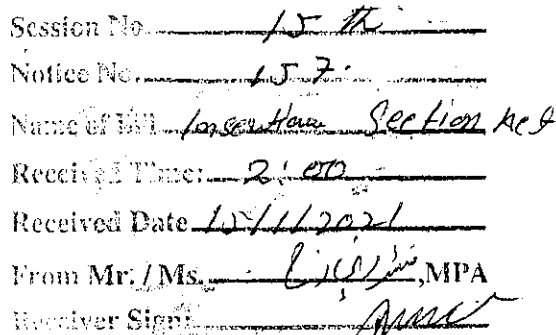 Session No. 15 th
Notice No. 157.
Name of Bill Section Act
Received Time: 2:00
Received Date 15/1/2021
From Mr. / Ms. ,MPA
Receiver Sign: